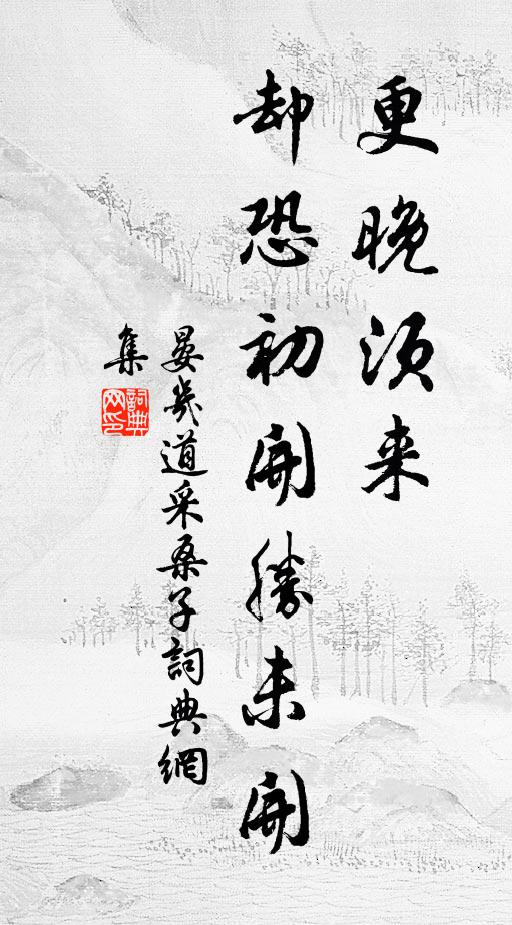 更晚須来
却恐初開勝未開
晏幾道采桑子詞典網
集
詞典
网印